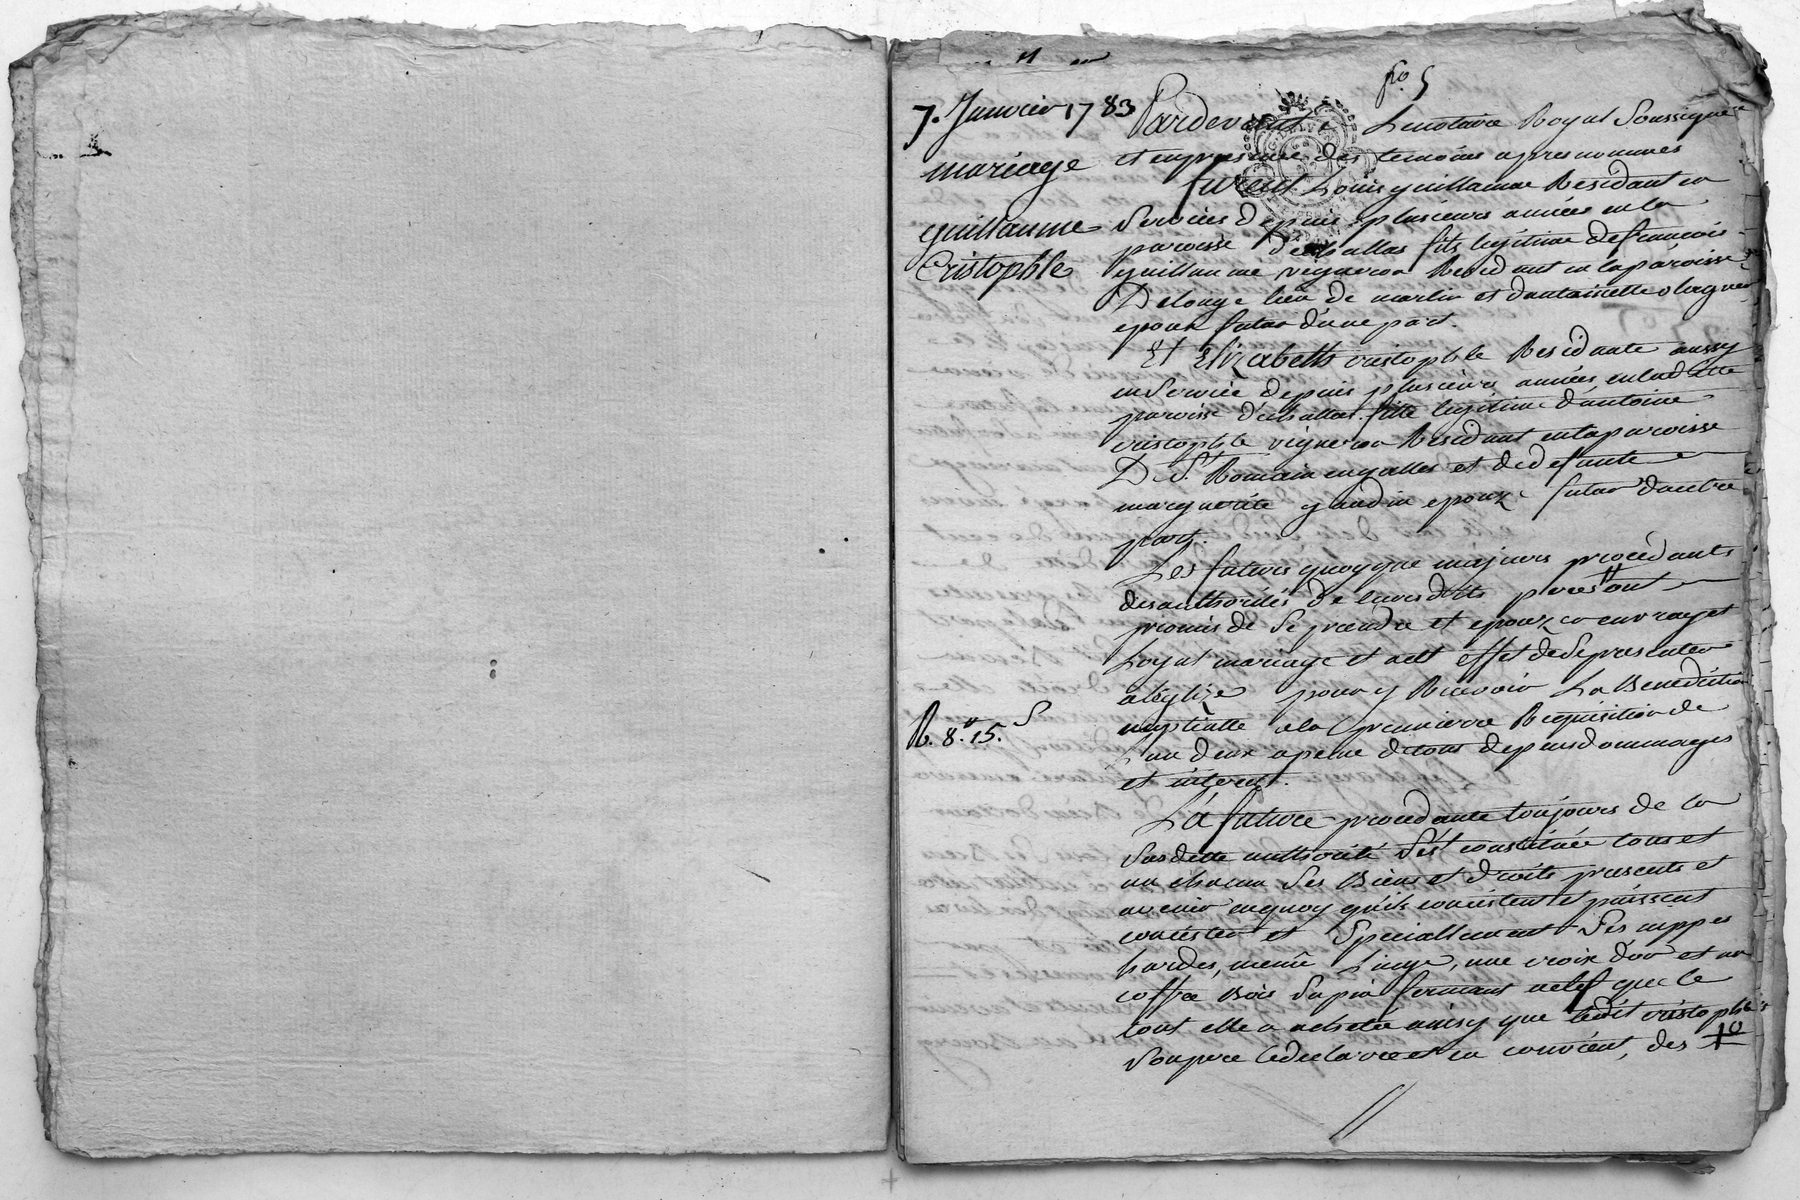 fo. 5
7. Janvier 1783
mariage
guillaume
Cristophle
R. 8.# 15.s
Pardevant Le notaire Royal Soussigné
et en presence des temoins apres nommés
furent Louis guillaume Residant en
Service depuis plusieurs années en la
paroisse fils legitime de francois
guillaume vigneron Residant en la paroisse
De longe lieu de marlin et dantoinette
epoux futur d'une part.
Et Elizabeth cristophle Residante aussy
en Service depuis plusieurs années en ladite
paroisse fille legitime d'antoine
cristophle vigneron Residant en la paroisse
De St. Romain en galles et de defunte
marguerite gaudin epouze future d'autre
part.
Les futurs quoyque majeurs procedants
des authorités de leurs dits peres ont
promis de Se prendre et epouzer en vray et
Loyal mariage et a cet effet de Se presenter
a l'eglize pour y Recevoir La Benediction
nuptialle a la premierre Requisition de
L'un deux a peine de tous depens dommages
et interest.
La future procedante toujours de la
Susditte authorité S'est constituée tous et
un chacun Ses Biens et droits presents et
avenir en quoy qu'ils consistent et puissent
consister et Speciallement Ses nippes
hardes, menû Linge, une croix d'or et un
coffre Bois Sapin fermant a clef que le
tout elle a acheté ainsy que ledit cristophle
Son pere le declarre et en convient, des